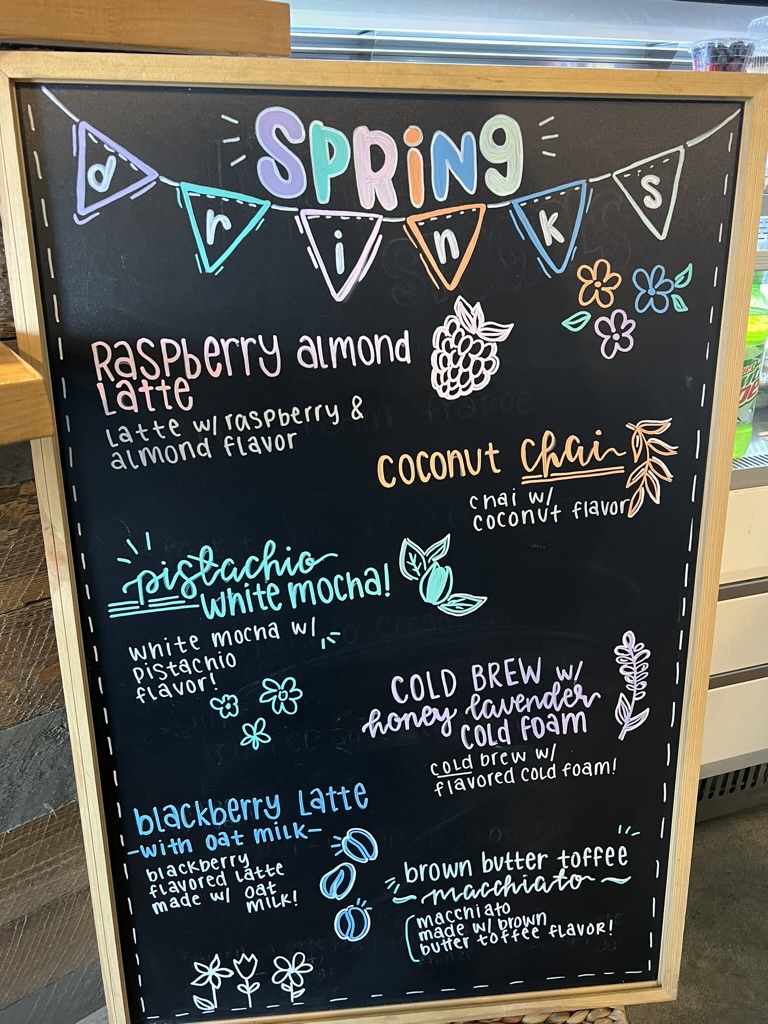 SPRiNg
drinks
Raspberry almond
Latte
Latte w/ raspberry &
almond flavor
coconut chai
chai w/
coconut flavor
pistachio
white mocha!
white mocha w/
pistachio
flavor!
COLD BREW w/
honey lavender
COLD FOAM
cold brew w/
flavored cold foam!
blackberry Latte
-with oat milk-
blackberry
flavored latte
made w/ oat
milk!
brown butter toffee
~macchiato~
macchiato
made w/ brown
butter toffee flavor!